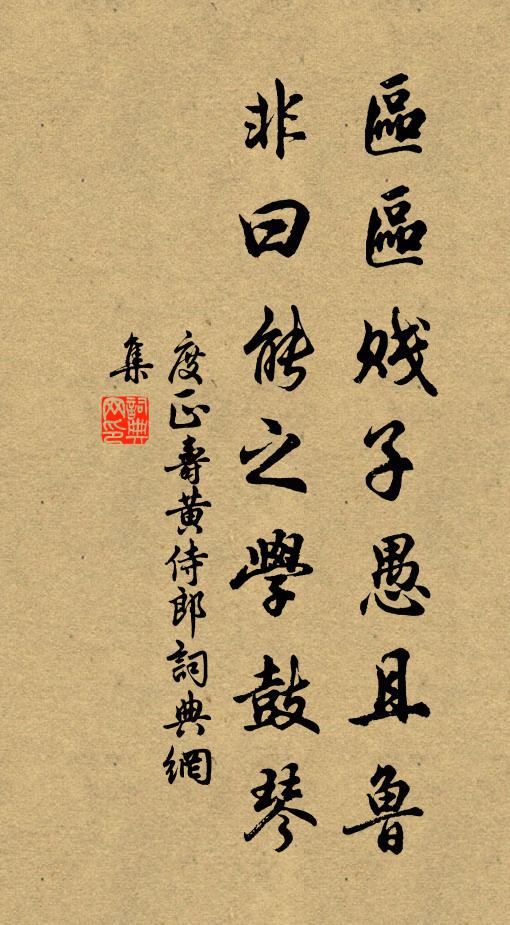 區區賤子愚且魯
非曰能之學鼓琴
度正壽黃侍郎詞典網
集
詞典
网印